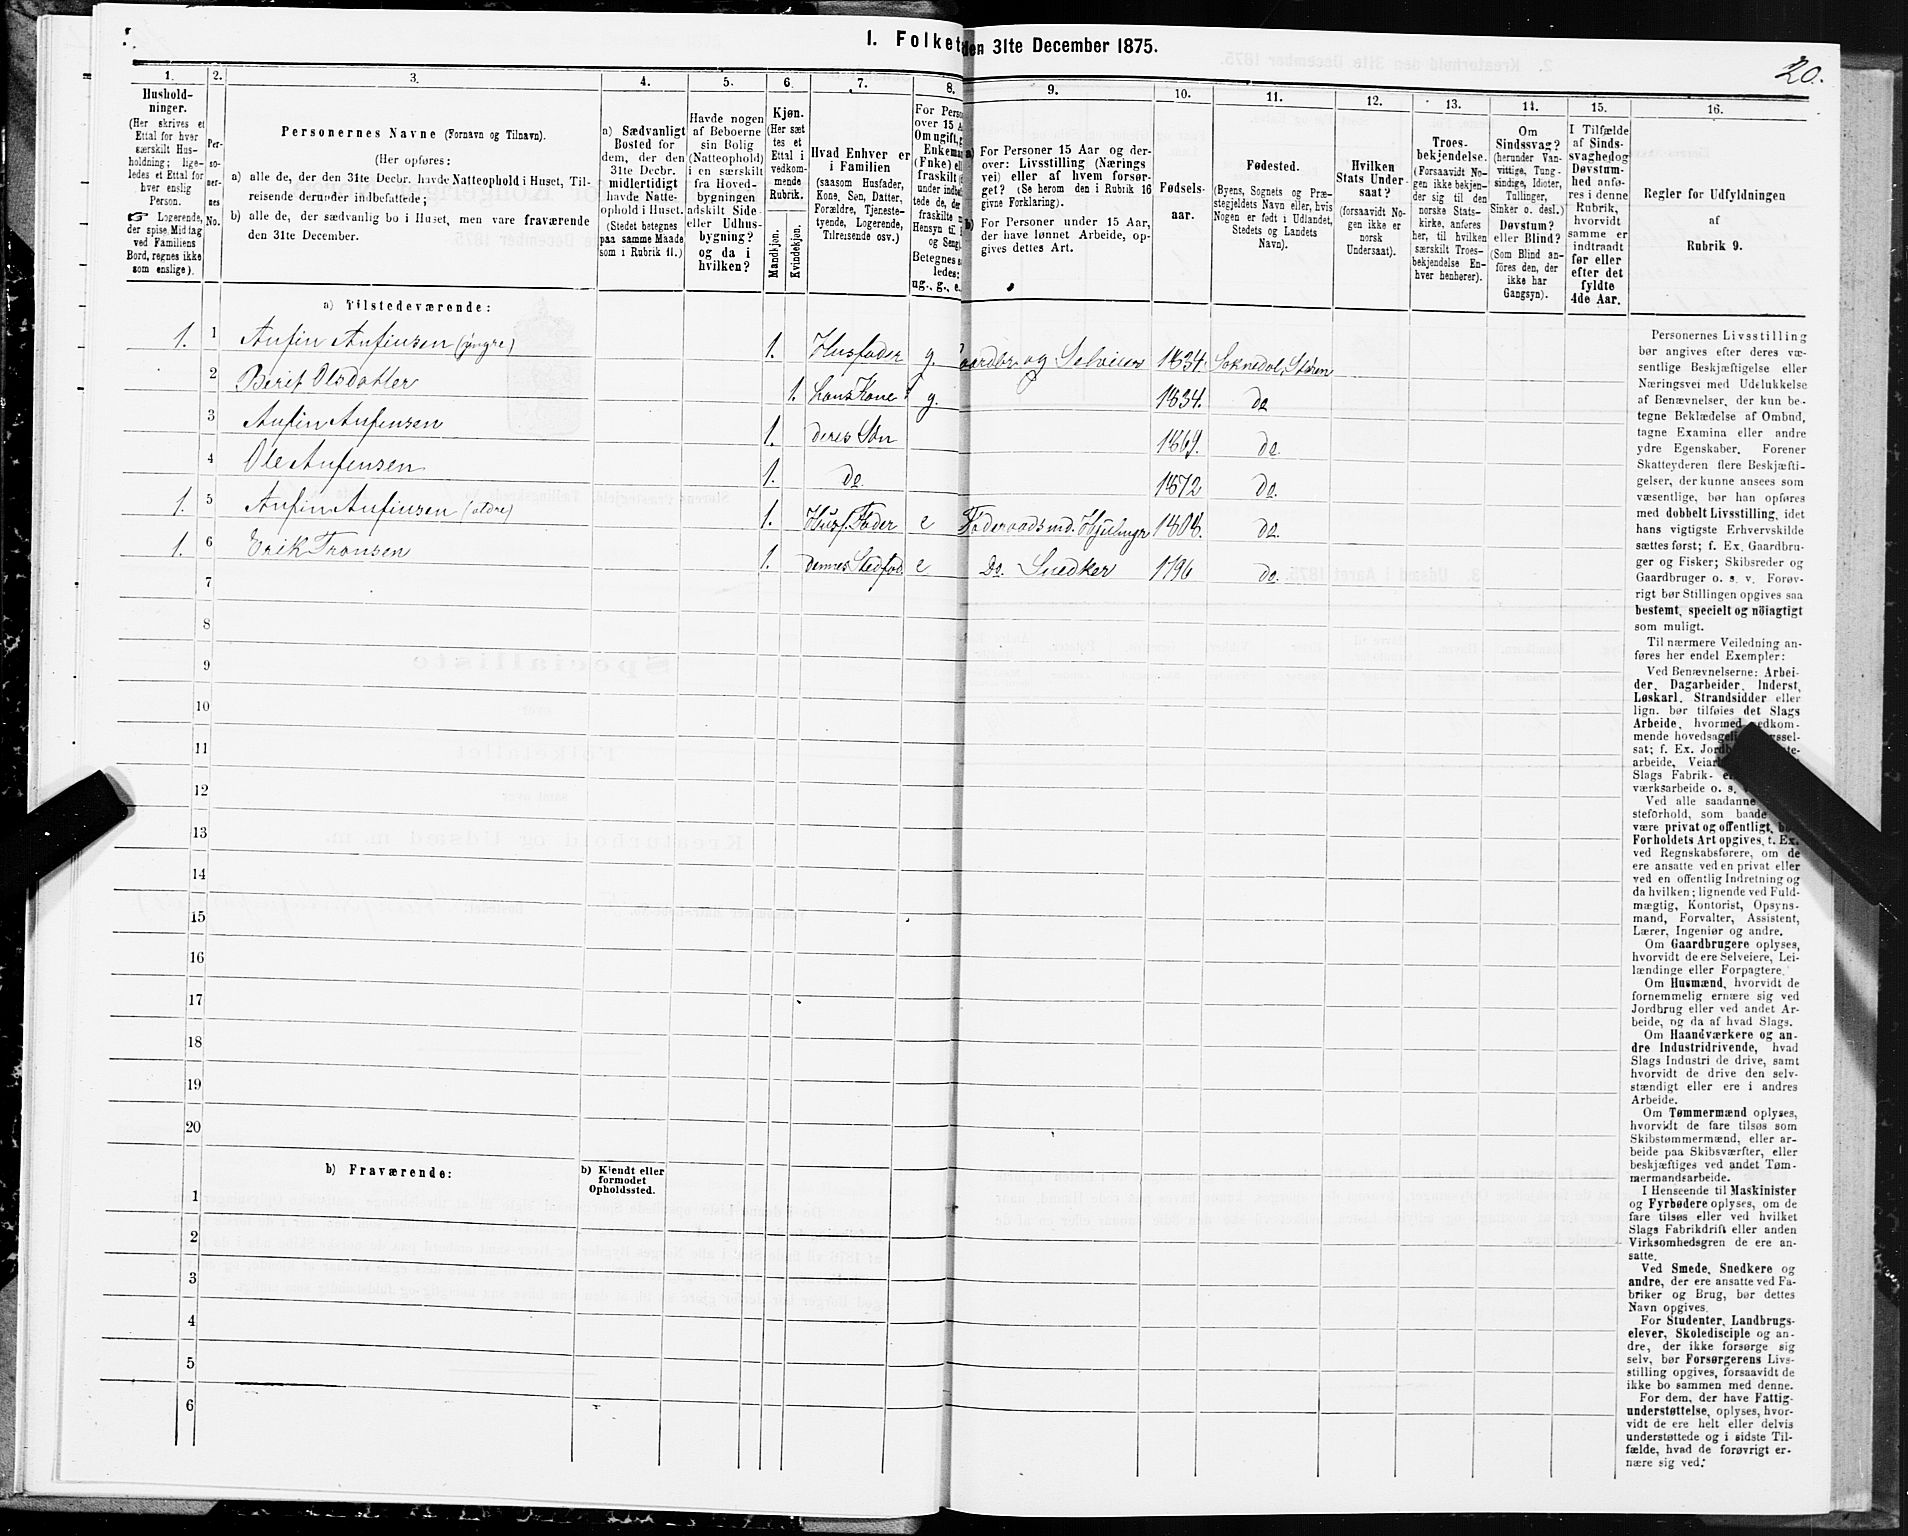 I. Folket
den 31te December 1875.
20.
1.
2.
3.
4.
5.
6.
7.
8.
9.
10.
11.
12.
13.
14.
15.
16.
Hushold-
ninger.
(Her skrives et
Ettal for hver
særskilt Hus-
holdning; lige-
ledes et Ettal for
hver enslig
Person.
☞ Logerende,
der spise Middag
ved Familiens
Bord, regnes ikke
som enslige).
Per-
so-
ner-
nes
No.
Personernes Navne (Fornavn og Tilnavn).
(Her opføres:
a) alle de, der den 31te Decbr. havde Natteophold i Huset, Til-
reisende derunder indbefattede;
b) alle de, der sædvanlig bo i Huset, men vare fraværende
den 31te December.
a) Sædvanligt
Bosted for
dem, der den
31te Decbr.
midlertidigt
havde Natte-
ophold i Huset.
(Stedet betegnes
paa samme Maade
som i Rubrik 11.)
Havde nogen
af Beboerne
sin Bolig
(Natteophold)
i en særskilt
fra Hoved-
bygningen
adskilt Side-
eller Udhus-
bygning?
og da i
hvilken?
Kjøn.
(Her sæt-
tes et
Ettal i
vedkom-
mende
Rubrik.
Mandkjøn.
Kvindekjøn.
Hvad Enhver er
i Familien
(saasom Husfader,
Kone, Søn, Datter,
Forældre, Tjeneste-
tyende, Logerende,
Tilreisende osv.)
For Perso
over 15 A
Om ugift, g
Enkeman
(Fnke) el
fraskilt
under indbe
tede de, der
fraskilte
Hensyn til
og Seng)
Betegnes s
ledes:
ug., g., e.
a) For Personer 15 Aar og der-
over: Livsstilling (Nærings
vei) eller af hvem forsør-
get? (Se herom den i Rubrik 16
givne Forklaring).
b) For Personer under 15 Aar,
der have lønnet Arbeide, op-
gives dettes Art.
Fødsels-
aar.
Fødested.
(Byens, Sognets og Præ-
stegjeldets Navn eller, hvis
Nogen er født i Udlandet,
Stedets og Landets
Navn).
Hvilken
Stats Under-
saat?
(forsaavidt No-
gen ikke er
norsk
Undersaat).
Troes-
bekjendelse.
(Forsaavidt No-
gen ikke bekjen-
der sig til den
norske Stats-
kirke, anføres
her, til hvilken
særskilt Troes-
bekjendelse En-
hver henhører).
Om
Sindssvag?
(herunder Van-
vittige, Tung-
sindige, Idioter,
Tullinger,
Sinker o. desl.)
Døvstum?
eller Blind?
(Som Blind an-
føres den, der
ikke har
Gangsyn).
I Tilfælde
af Sinds-
svaghedog
Døvstum-
hed anfø-
res i denne
Rubrik,
hvorvidt
samme er
indtraadt
før eller
efter det
fyldte
4de Aar.
Regler for Udfyldningen
af
Rubrik 9.
a) Tilstedeværende:
1. 1 Anfin Anfinsen (yngre) 1. Husfader g. aardbr. og Selveier 1834. Soknedal, Støren
2 Berit Olsdatter 1. hans Kone g. 1834. do
3 Anfin Anfinsen 1. deres Søn 1869. do.
4 Ole Anfinsen 1. do. 1872 do.
1. 5 Anfin Anfinsen (ældre) 1. Husf. Fader e Føderaadsmd. Hjulmgr 1808. do.
1. 6 Erik Tronsen 1. dennes Stedfad. e Do. Snedker 1796 do.
7
8
9
10
11
12
13
14
15
16
17
18
19
20
b) Fraværende:
b) Kjendt eller
formodet
Opholdssted.
1
2
3
4
5
6
Personernes Livsstilling
bør angives efter deres væ-
sentlige Beskjæftigelse eller
Næringsvei med Udelukkelse
af Benævnelser, der kun be-
tegne Beklædelse af Ombud,
tagne Examina eller andre
ydre Egenskaber. Forener
Skatteyderen flere Beskjæfti-
gelser, der kunne ansees som
væsentlige, bør han opføres
med dobbelt Livsstilling, idet
hans vigtigste Erhvervskilde
sættes først; f. Ex. Gaardbru-
ger og Fisker; Skibsreder og
Gaardbruger o. s. v. Forøv-
rigt bør Stillingen opgives saa
bestemt, specielt og nöiagtigt
som muligt.
Til nærmere Veiledning an-
føres her endel Exempler:
Ved Benævnelserne: Arbei-
der, Dagarbeider, Inderst,
Løskarl, Strandsidder eller
lign. bør tilføies det Slags
Arbeide, hvormed vedkom-
mende hovedsageli
sat; f. Ex. Jord
arbeide, Veiar
Slags Fabrik-
værksarbeide o. s.
Ved alle saadanne
steforhold, som baade
være privat og offentligt, bø
Forholdets Art opgives, f. Ex.
ved Regnskabsførere, om de
ere ansatte ved en privat eller
ved en offentlig Indretning og
da hvilken; lignende ved Fuld-
mægtig, Kontorist, Opsyns-
mand, Forvalter, Assistent,
Lærer, Ingeniør og andre.
Om Gaardbrugere oplyses,
hvorvidt de ere Selveiere, Lei-
lændinge eller Forpagtere.
Om Husmænd, hvorvidt de
fornemmelig ernære sig ved
Jordbrug eller ved andet Ar-
beide, og da af hvad Slags.
Om Haandværkere og an-
dre Industridrivende, hvad
Slags Industri de drive, samt
hvorvidt de drive den selv-
stændigt eller ere i andres
Arbeide.
Om Tømmermænd oplyses,
hvorvidt de fare tilsøs som
Skibstømmermænd, eller ar-
beide paa Skibsværfter, eller
beskjæftiges ved andet Tøm-
mermandsarbeide.
I Henseende til Maskinister
og Fyrbødere oplyses, om de
fare tilsøs eller ved hvilket
Slags Fabrikdrift eller anden
Virksomhedsgren de ere an-
satte.
Ved Smede, Snedkere og
andre, der ere ansatte ved Fa-
briker og Brug, bør dettes
Navn opgives.
For Studenter, Landbrugs-
elever, Skoledisciple og an-
dre, der ikke forsørge sig
selv, bør Forsørgerens Livs-
stilling opgives, forsaavidt de
ikke bo sammen med denne.
For dem, der have Fattig-
understøttelse, oplyses, hvor-
vidt de ere helt eller delvis
understøttede og i sidste Til-
fælde, hvad de forøvrigt er-
nære sig ved.